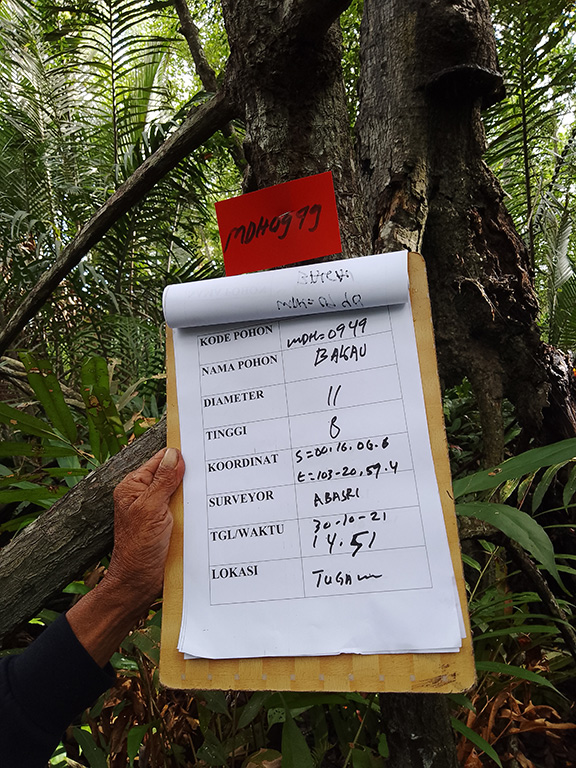 MDH0979
KODE POHON MDH=0949
NAMA POHON BAKAU
DIAMETER 11
TINGGI 8
KOORDINAT S=00.16.06.6
E=103-20,59.4
SURVEYOR ABASRI
TGL/WAKTU 30-10-21
14.51
LOKASI